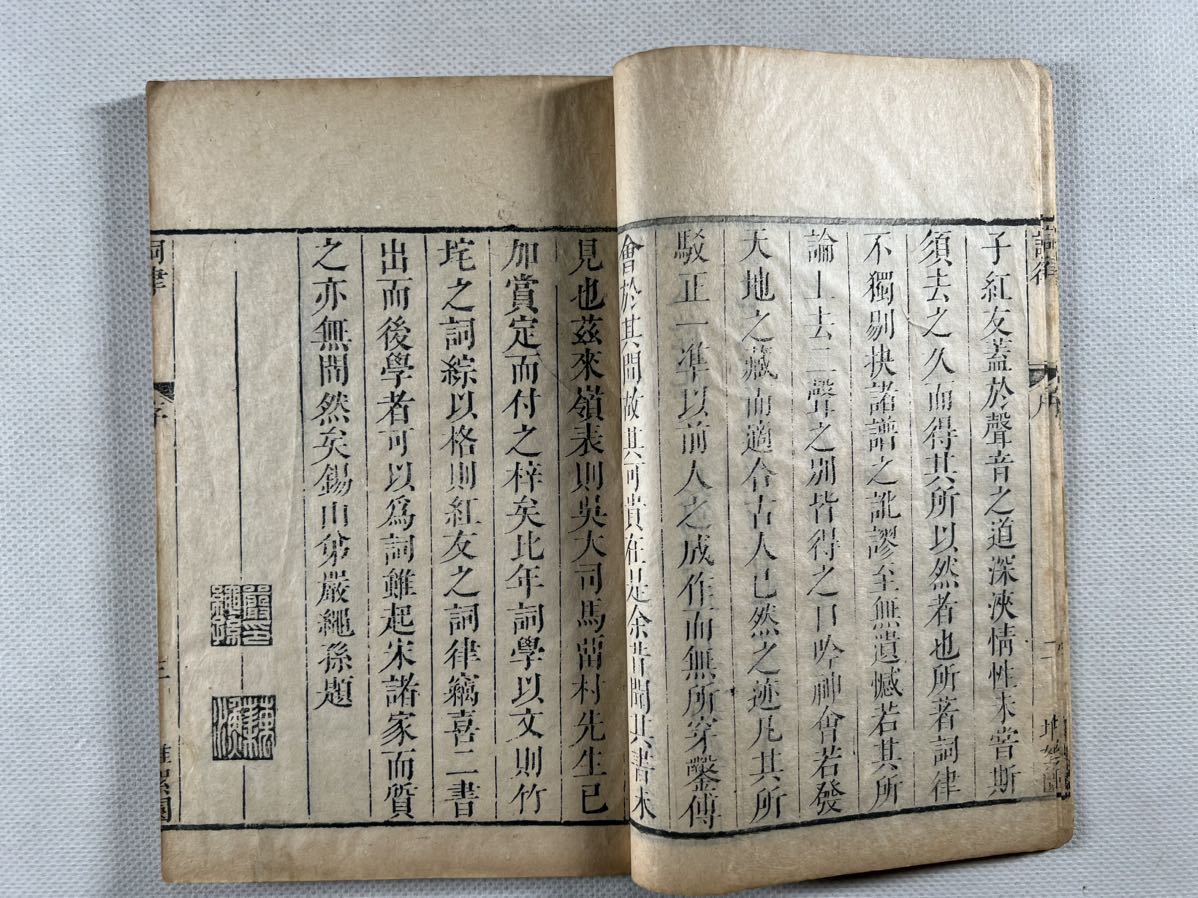 子紅友蓋於聲音之道深浹情性未嘗斯
須去之久而得其所以然者也所著詞律
不獨剔抉諸譜之訛謬至無遺憾若其所
論上去二聲之別皆得之口吟神會若發
天地之藏而適合古人已然之迹凡其所
駁正一準以前人之成作而無所穿鑿傅
會於其間故其可貴在是余昔聞其書未
見也茲來嶺表則吳大司馬菑村先生已
加賞定而付之梓矣比年詞學以文則竹
垞之詞綜以格則紅友之詞律竊喜二書
出而後學者可以為詞雖起宋諸家而質
之亦無間然矣錫山弟嚴繩孫題
嚴印
繩孫
藕漁
詞律
序
三
堆絮園
詞律
序
二
堆絮園